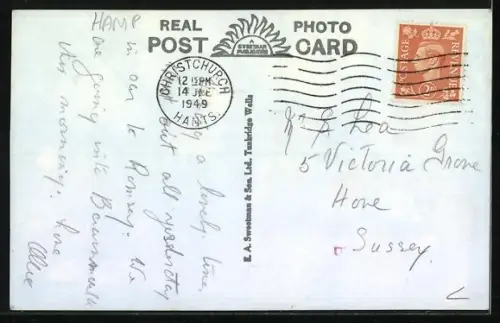 HAMP
REAL PHOTO
POST CARD
A SWEETMAN PUBLICATION
CHRISTCHURCH
12 15 PM
14 JNE
1949
HANTS.
POSTAGE REVENUE
E. A. Sweetman & Son, Ltd., Tunbridge Wells
a lovely time.
out all yesterday
in car to Romsey. We
are going into Bournemouth
this morning. Love
Allie
Mr Lea
5 Victoria Grove
Hove
Sussex.